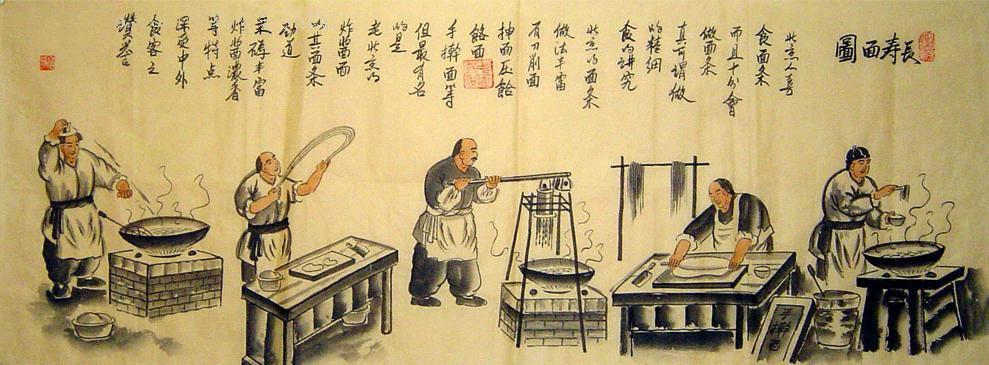 長寿面圖
北京人喜
食面条
而且十分會
做面条
真可謂做
的精细
食的講究
北京的面条
做法丰富
有刀削面
抻面压饸
餎面
手擀面等
但最有名
的是
老北京的
炸醬面
以其面条
劲道
菜碼丰富
炸醬濃香
等特点
深受中外
食客之
讚誉
手擀面